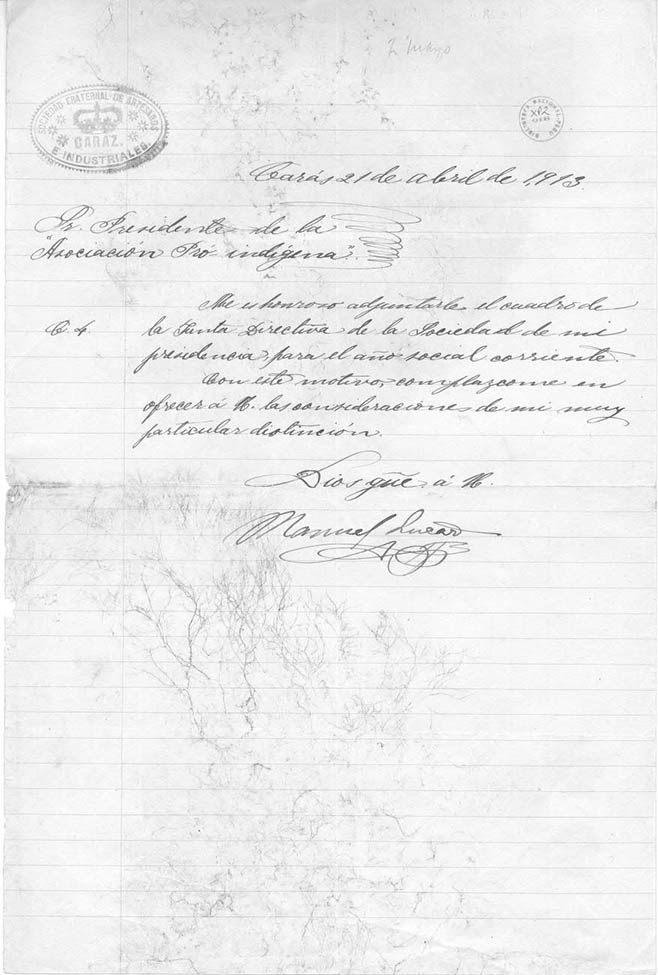 2 Mayo
SOCIEDAD FRATERNAL DE ARTESANOS
CARAZ.
E INDUSTRIALES.
BIBLIOTECA NACIONAL
XP2
Carás 21 de abril de 1,913.
Sr. Presidente de la
"Asociación Pró indígena".
Me es honroso adjuntarle el cuadro de
C. 4
la Junta Directiva de la Sociedad de mi
presidencia, para el año social corriente.
Con este motivo, complazcome en
ofrecer á U. las consideraciones de mi muy
particular distinción.
Dios gûe á U.
Manuel